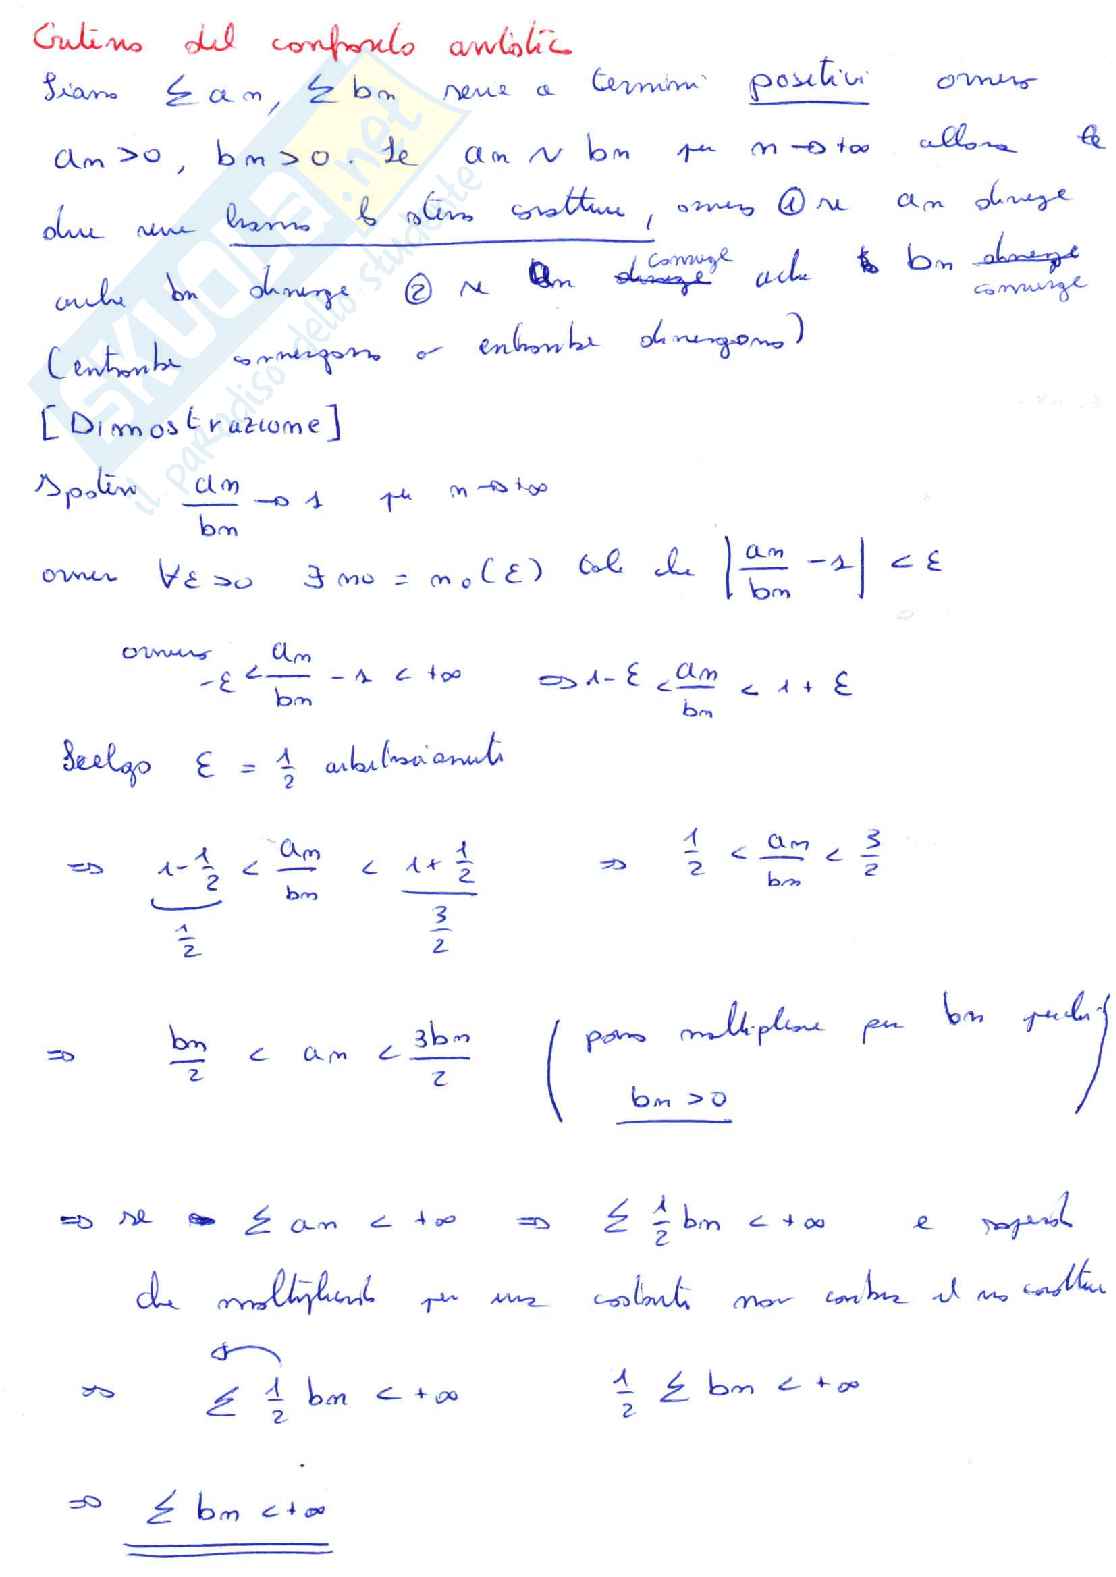 Criterio del confronto asintotico
Siano Σ an, Σ bn serie a termini positivi ovvero
an >0, bn >0. Se an ~ bn per n→+∞ allora le
due serie hanno lo stesso carattere, ovvero ① se an diverge
anche bn diverge ② se an converge anche bn converge
(entrambe convergono o entrambe divergono)
[Dimostrazione]
Ipotesi an/bn → 1 per n→+∞
ovvero ∀ε>0 ∃ n0 = n0(ε) tale che |an/bn - 1| < ε
ovvero -ε < an/bn - 1 < +∞ ⇒ 1-ε < an/bn < 1+ε
Scelgo ε = 1/2 arbitrariamente
⇒ 1-1/2 < an/bn < 1+1/2 ⇒ 1/2 < an/bn < 3/2
1/2 3/2
⇒ bn/2 < an < 3bn/2 (posso moltiplicare per bn perché
bn >0)
⇒ se Σ an < +∞ ⇒ Σ 1/2 bn < +∞ e sapendo
che moltiplicando per una costante non cambia il suo carattere
⇒ Σ 1/2 bn < +∞ 1/2 Σ bn < +∞
⇒ Σ bn < +∞
SKUOLA.net
il paradiso dello studente